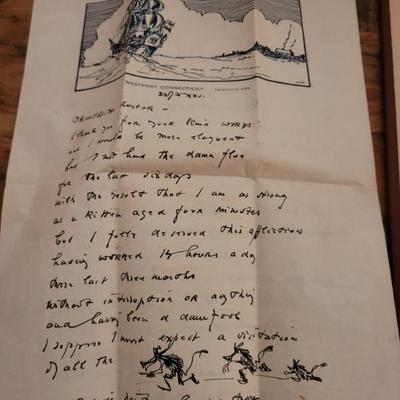 WESTPORT, CONNECTICUT. TELEPHONE
Doctor -
I thank you for your kind words
and I would be more eloquent
had I not had the damn flue
for the last six days
with the result that I am as strong
as a kitten aged four minutes
but I fully deserved this affliction
having worked 14 hours a day
these last three months
without interruption or anything
and having been a damn fool
I suppose I must expect a visitation
of all the